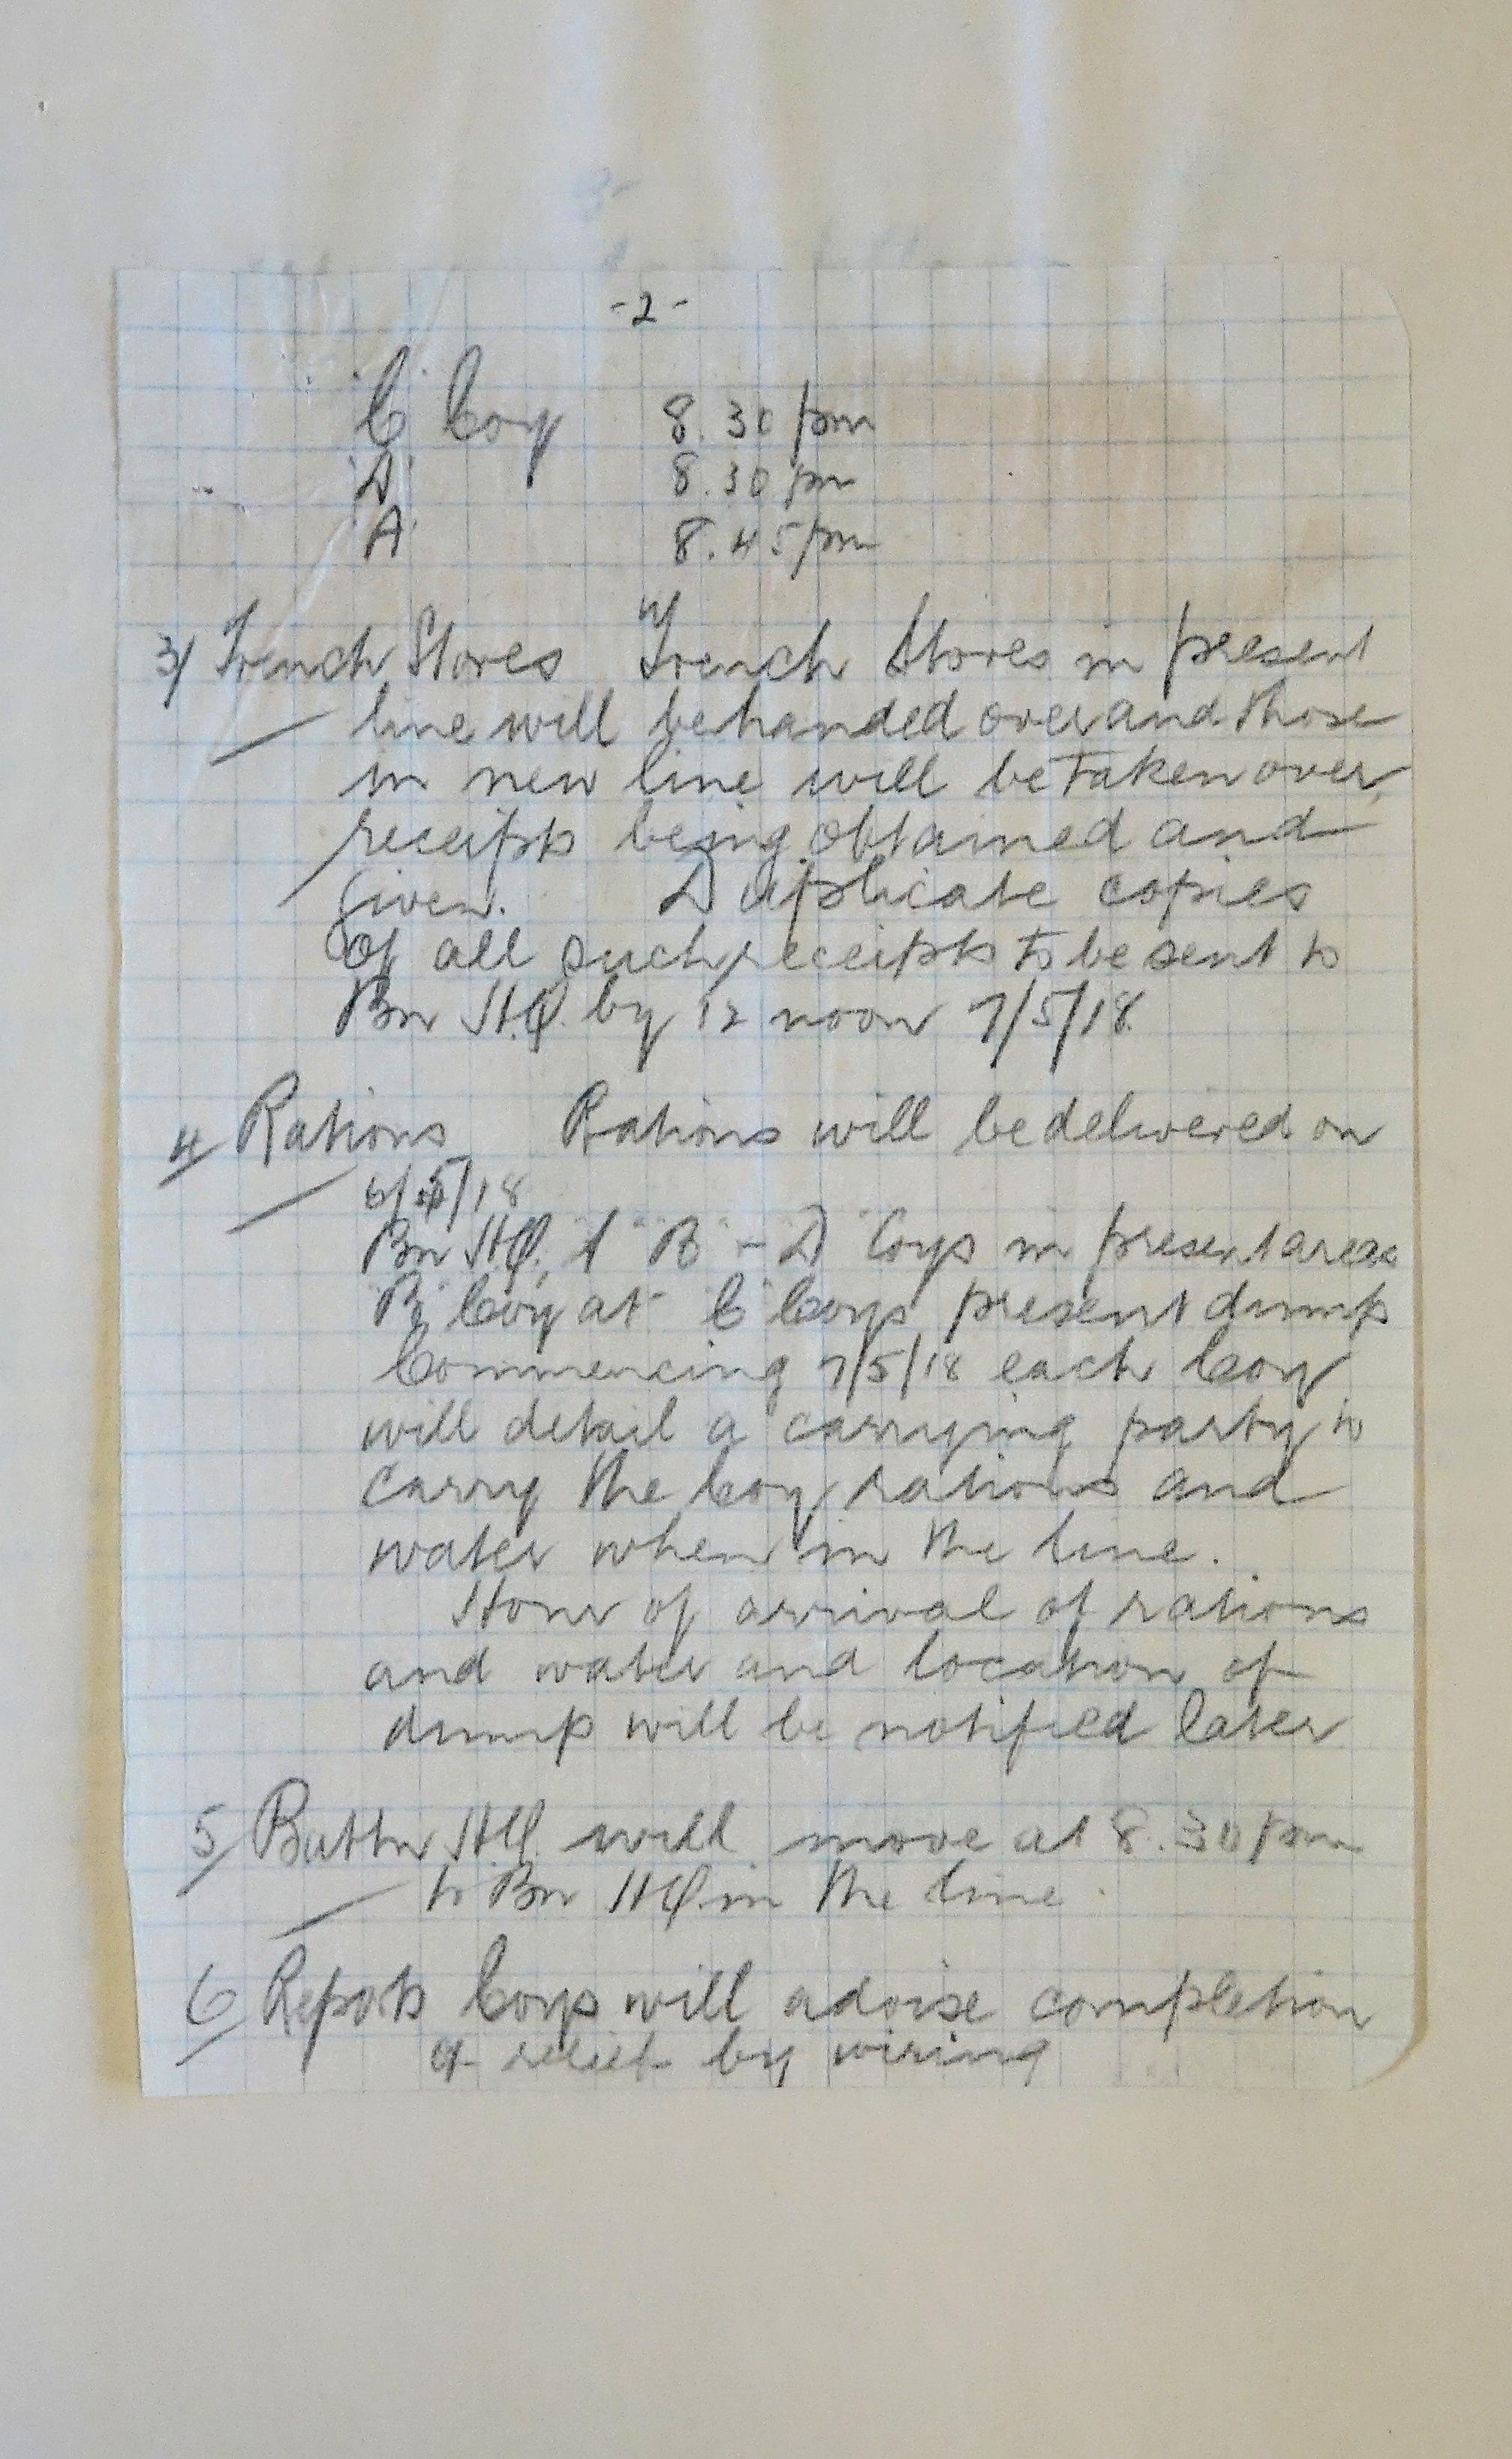 -2-
"C" Coy 8.30 pm
"D" 8.30 pm
"A" 8.45 pm
3/ Trench Stores Trench Stores in present
line will be handed over and those
in new line will be taken over,
receipts being obtained and
given. Duplicate copies
of all such receipts to be sent to
Bn H.Q. by 12 noon 7/5/18.
4/ Rations Rations will be delivered on
6/5/18
Bn H.Q., "B" - "D" Coys in present areas
Coy at "C" Coys present dump
Commencing 7/5/18 each Coy
will detail a carrying party to
carry the Coy rations and
water when in the line.
Hour of arrival of rations
and water and location of
dump will be notified later
5/ Battn H.Q. will move at 8.30 pm
to Bn H.Q. in the line.
6/ Reports Coys will advise completion
of relief by wiring